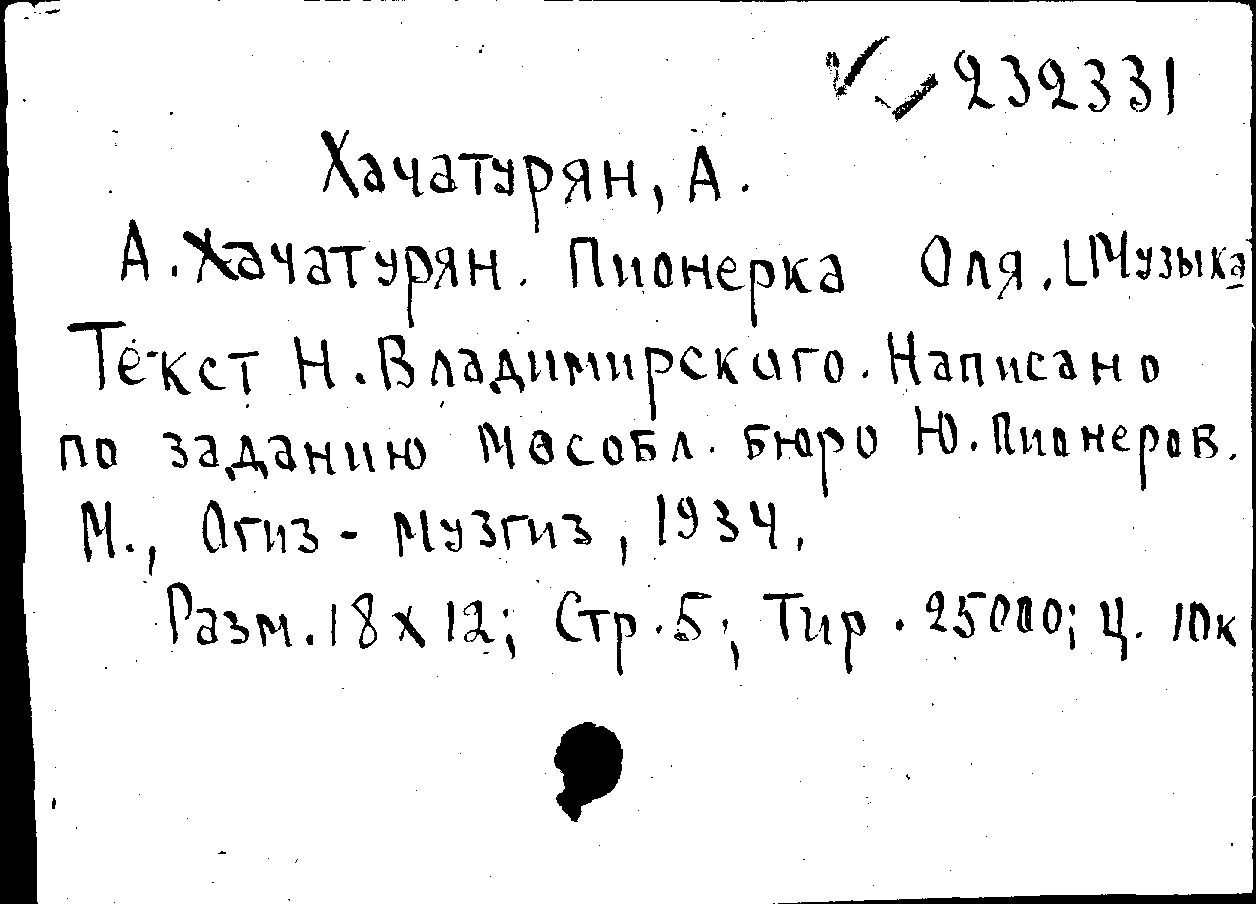 232331
Хачатурян, А.
А. Хачатурян. Пионерка Оля. [Музыка
Текст Н. Владимирского. Написано
по заданию Мособл. бюро Ю. Пионеров.
М., Огиз - Музгиз, 1934.
Разм. 18 х 12; Стр. 5; Тир. 25000; Ц. 10к